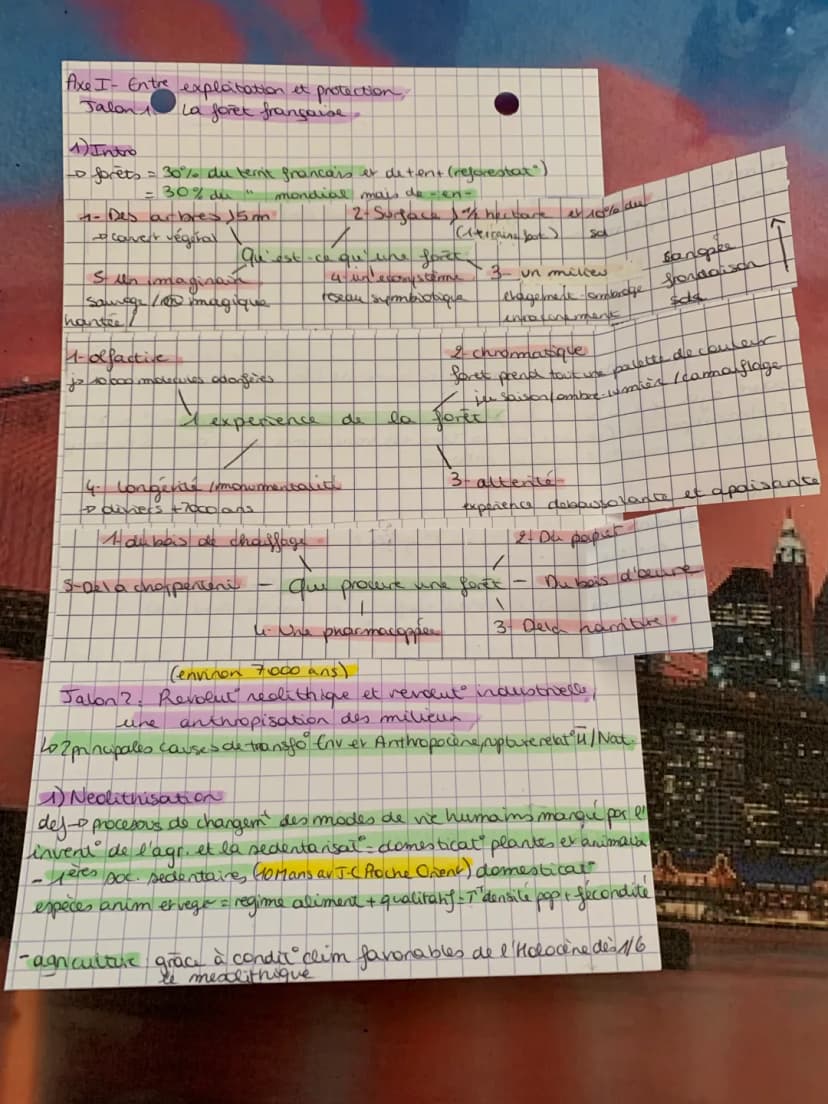 Axe I- Entre exploitation et protection,
Jalon 1 La forêt française.
1) Intro
→ forêts = 30% du territ francais et de + en + (reforestat°)
= 30% du " mondial mais de - en -
1- Des arbres >5m
→ couvert végétal
2- Surface > ½ hectare et 10% du sol
(1 terrain foot)
Qu'est-ce qu'une forêt
5- un imaginair
sauvage / magique
hantée /
4- un ecosystème
reseau symbiotique
3- un milieu
etagement - ombrage
canopée
frondaison
sds
1- olfactive
10 000 molécules odorifées
2- chromatique
foret prend tout une palette de couleur
jeu saison/ombre-lumière / camouflage
1 experience de la forêt
4- Longévité /monumentalité
→ oliviers +7000 ans
3- alterité
expérience deboussolante et apaisante
1- du bois de chauffage
2- Du papier
5- De la charpenterie - Que procure une forêt - Du bois d'œuvre
4- Une pharmacopée
3- De la nourriture
(environ 7000 ans)
Jalon 2: Revolut° neolithique et revolut° industrielle,
une anthropisation des milieu
↳ 2 principales causes de transfo° Env et Anthropocène, rupture relat° H/Nat
1) Neolithisation
def → processus de changemt des modes de vie humains marqué par l'
invent° de l'agr. et la sedentarisat° = domesticat° plantes et animaux
- 1ères soc. sedentaires (10 M ans av J-C Proche Orient) domesticat°
espèces anim et vege = regime aliment + qualitatif = ↑ densité pop + fécondité
- agriculture grâce à condit° clim favorables de l'Holocène dès 1/6
le mesolithique